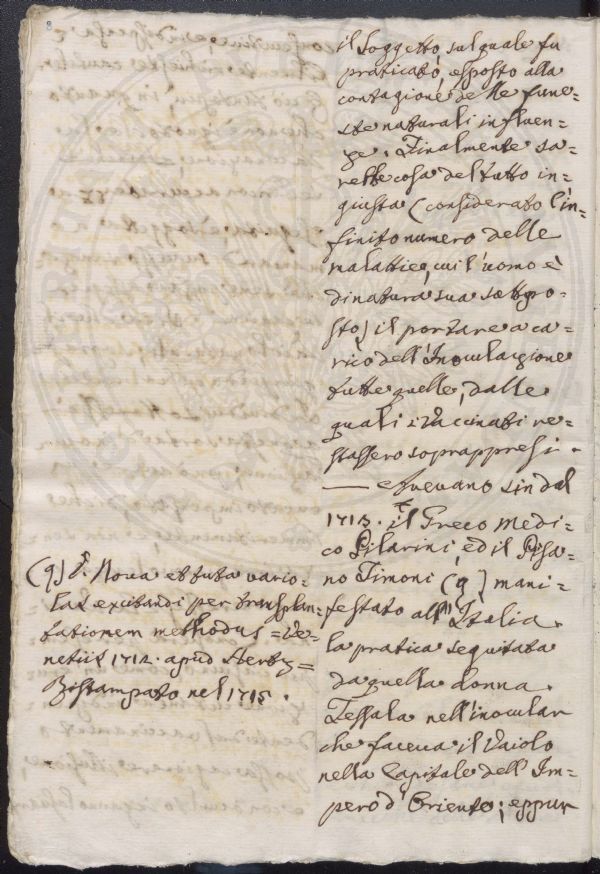 8
il soggetto, sul quale fu
praticato, esposto alla
contagione delle fune-
ste naturali influen-
ze. Finalmente sa-
rebbe cosa del tutto in-
giusta (considerato l'in-
finito numero delle
malattie, cui l'uomo è
di natura sua sottopo-
sto) il portare a ca-
rico dell'Inoculazione
tutte quelle, dalle
quali i Vaccinati re-
stassero soprappresi.
— Avevano sin dal
1713. il Greco Medi-
co Pilarini, ed il Pisa-
no Timoni (9) mani-
festato all'Italia
la pratica seguitata
da quella donna
Tessala nell'inocular
che faceva il Vaiolo
nella Capitale dell'Im-
pero d'Oriente; eppur
(9) Nova et tuta vario-
las excitandi per transplan-
tationem methodus = Ve-
netiis 1712. apud Hertz =
Ristampato nel 1715.